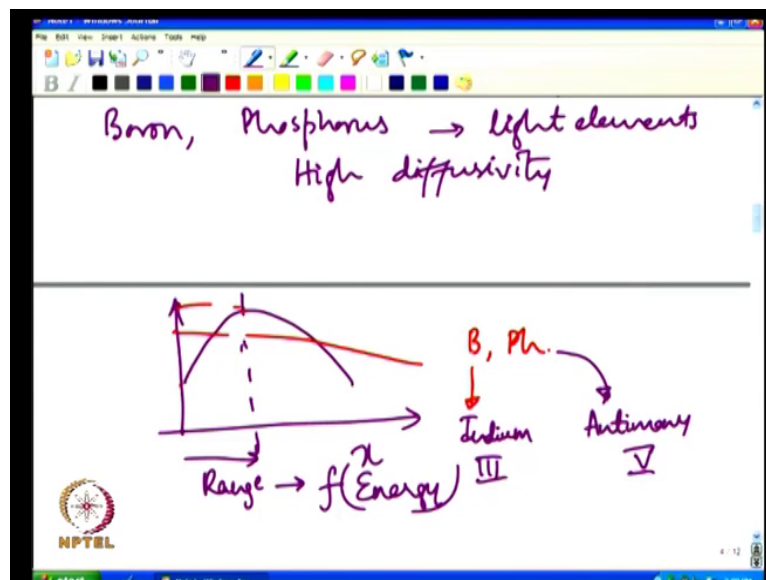 Note1 - Windows Journal
File Edit View Insert Actions Tools Help
B I
Boron, Phosphorus → light elements
High diffusivity
B, Ph.
Indium Antimony
x III V
Range → f(Energy)
NPTEL
4 / 12
start